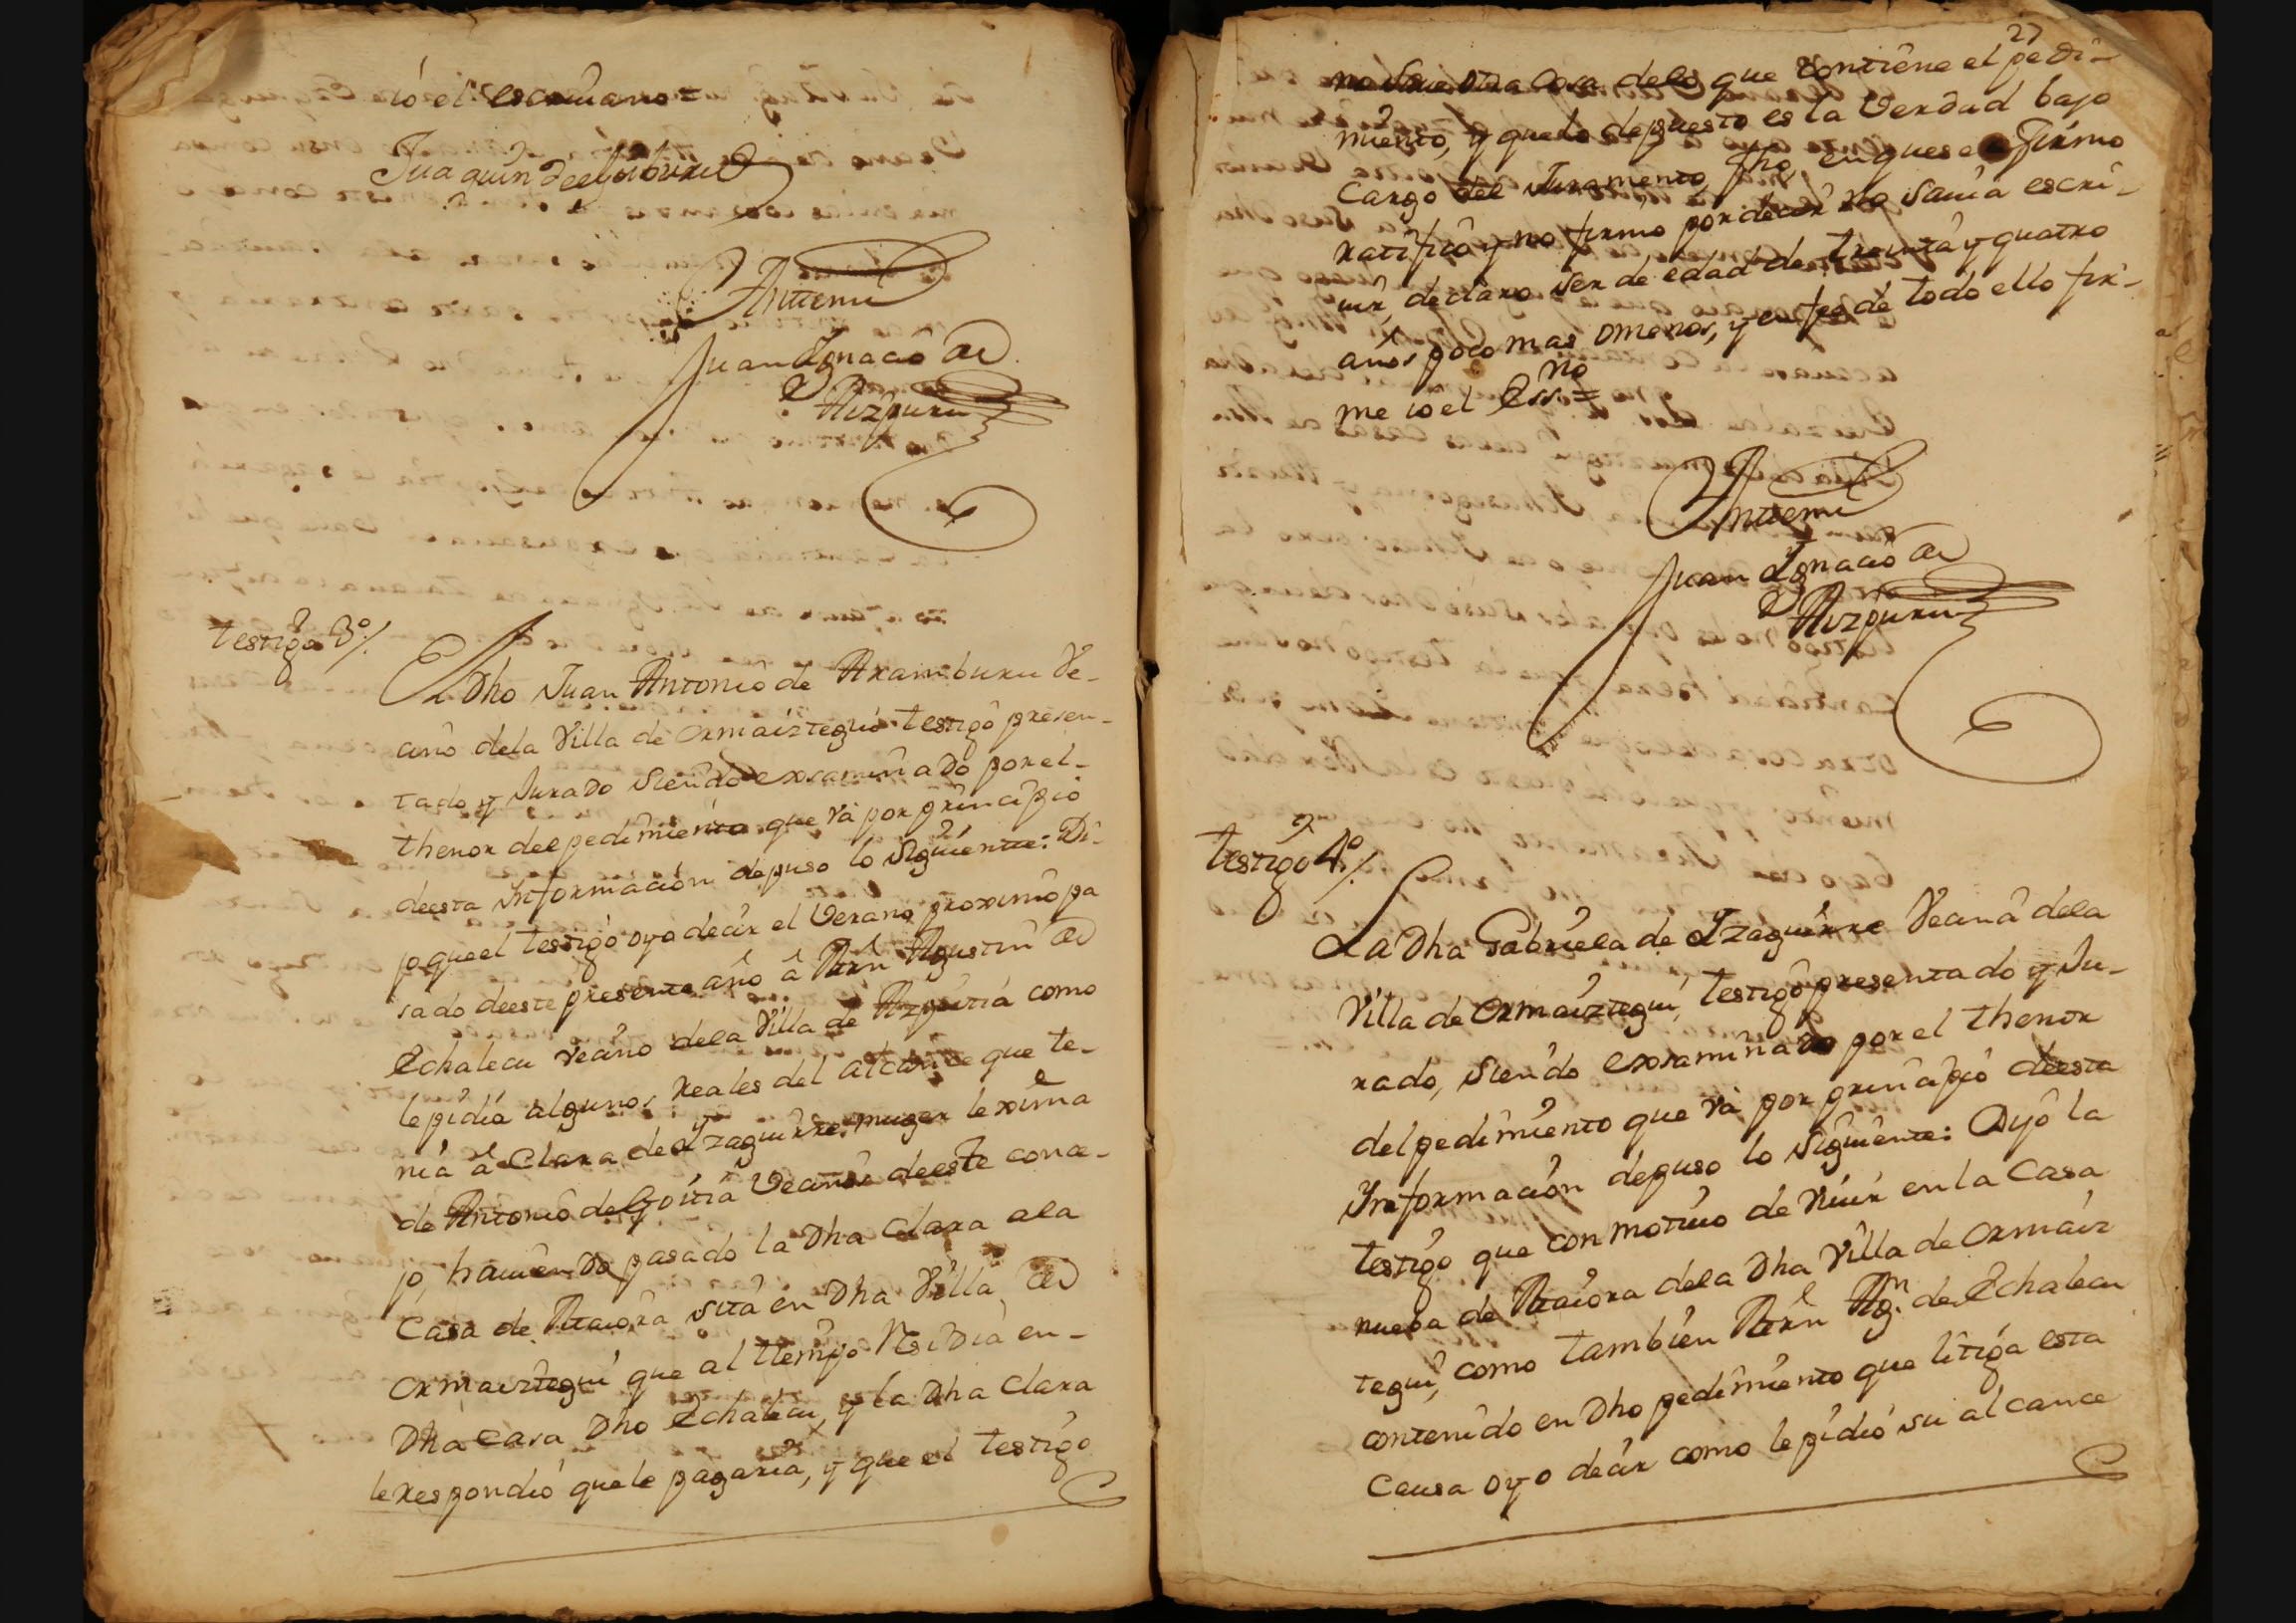 ió el escriuano =
Juaquin de
Antemi
Juan Ygnacio de
Aizpuru
testigo 3º/.
El Dho Juan Antonio de Aramburu Ve-
cino dela Villa de Ormaiztegui testigo presen-
tado, y Jurado siendo examinado por el
thenor del pedimiento que vá por principio
deesta Informacion depuso lo siguiente: Di-
jo que el testigo oyo decir el Verano proximo pa
sado deeste presente año â Agustin de
Echalecu vecino dela Villa de Azpeitia como
le pidia algunos Reales del alcance que te-
nia â Clara de Yzaguirre muger lexma
de Antonio de Goitia Vecino deeste conce-
jo, hauiendo pasado la Dha Clara ala
Casa de sita en Dha Villa de
Ormaiztegui que al tiempo Residia en-
Dha Casa Dho Echalecu, y la Dha Clara
le respondió que le pagaria, y que el testigo
27
no saue otra cosa delo que contiene el pedi-
miento, y que lo depuesto es la Verdad bajo
Cargo del Juramento fho, en que se firmo
ratifico y no firmo por decir no sauia escri-
uir, declaro ser de edad de treinta y quatro
años poco mas omenos, y en fee de todo ello fir-
me io el Essno =
Antemi
Juan Ygnacio de
Aizpuru
testigo 4º/.
La Dha Gabriela de Yzaguirre Vecina dela
Villa de Ormaiztegui, testigo presentado y Ju-
rado, siendo examinado por el thenor
del pedimiento que vá por principio deesta
Informacion depuso lo siguiente: Dijo la
testigo que con motiuo de Viuir en la Casa
nueba de dela Dha Villa de Ormaiz
tegui, como tambien Agn de Echalecu
contenido en Dho pedimiento que litiga esta
Causa oyo decir como le pidió su alcance